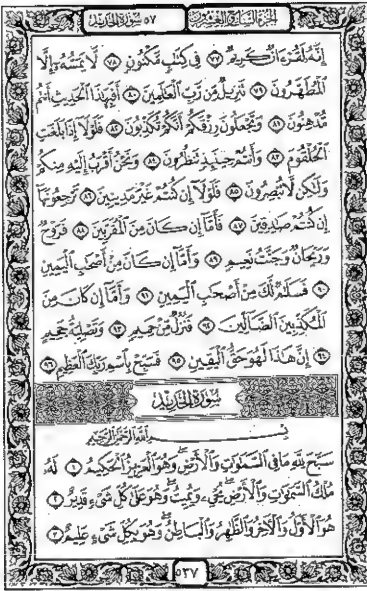 الجزء السابع والعشرون ٥٧ سورة الحديد
إِنَّهُۥ لَقُرْءَانٌ كَرِيمٌ ٧٧ فِى كِتَٰبٍ مَّكْنُونٍ ٧٨ لَّا يَمَسُّهُۥٓ إِلَّا
ٱلْمُطَهَّرُونَ ٧٩ تَنزِيلٌ مِّن رَّبِّ ٱلْعَٰلَمِينَ ٨٠ أَفَبِهَٰذَا ٱلْحَدِيثِ أَنتُم
مُّدْهِنُونَ ٨١ وَتَجْعَلُونَ رِزْقَكُمْ أَنَّكُمْ تُكَذِّبُونَ ٨٢ فَلَوْلَآ إِذَا بَلَغَتِ
ٱلْحُلْقُومَ ٨٣ وَأَنتُمْ حِينَئِذٍ تَنظُرُونَ ٨٤ وَنَحْنُ أَقْرَبُ إِلَيْهِ مِنكُمْ
وَلَٰكِن لَّا تُبْصِرُونَ ٨٥ فَلَوْلَآ إِن كُنتُمْ غَيْرَ مَدِينِينَ ٨٦ تَرْجِعُونَهَآ
إِن كُنتُمْ صَٰدِقِينَ ٨٧ فَأَمَّآ إِن كَانَ مِنَ ٱلْمُقَرَّبِينَ ٨٨ فَرَوْحٌ
وَرَيْحَانٌ وَجَنَّتُ نَعِيمٍ ٨٩ وَأَمَّآ إِن كَانَ مِنْ أَصْحَٰبِ ٱلْيَمِينِ
٩٠ فَسَلَٰمٌ لَّكَ مِنْ أَصْحَٰبِ ٱلْيَمِينِ ٩١ وَأَمَّآ إِن كَانَ مِنَ
ٱلْمُكَذِّبِينَ ٱلضَّآلِّينَ ٩٢ فَنُزُلٌ مِّنْ حَمِيمٍ ٩٣ وَتَصْلِيَةُ جَحِيمٍ
٩٤ إِنَّ هَٰذَا لَهُوَ حَقُّ ٱلْيَقِينِ ٩٥ فَسَبِّحْ بِٱسْمِ رَبِّكَ ٱلْعَظِيمِ ٩٦
سورة الحديد
بِسْمِ ٱللَّهِ ٱلرَّحْمَٰنِ ٱلرَّحِيمِ
سَبَّحَ لِلَّهِ مَا فِى ٱلسَّمَٰوَٰتِ وَٱلْأَرْضِ وَهُوَ ٱلْعَزِيزُ ٱلْحَكِيمُ ١ لَهُۥ
مُلْكُ ٱلسَّمَٰوَٰتِ وَٱلْأَرْضِ يُحْىِۦ وَيُمِيتُ وَهُوَ عَلَىٰ كُلِّ شَىْءٍ قَدِيرٌ ٢
هُوَ ٱلْأَوَّلُ وَٱلْـَٔاخِرُ وَٱلظَّٰهِرُ وَٱلْبَاطِنُ وَهُوَ بِكُلِّ شَىْءٍ عَلِيمٌ ٣
٥٣٧